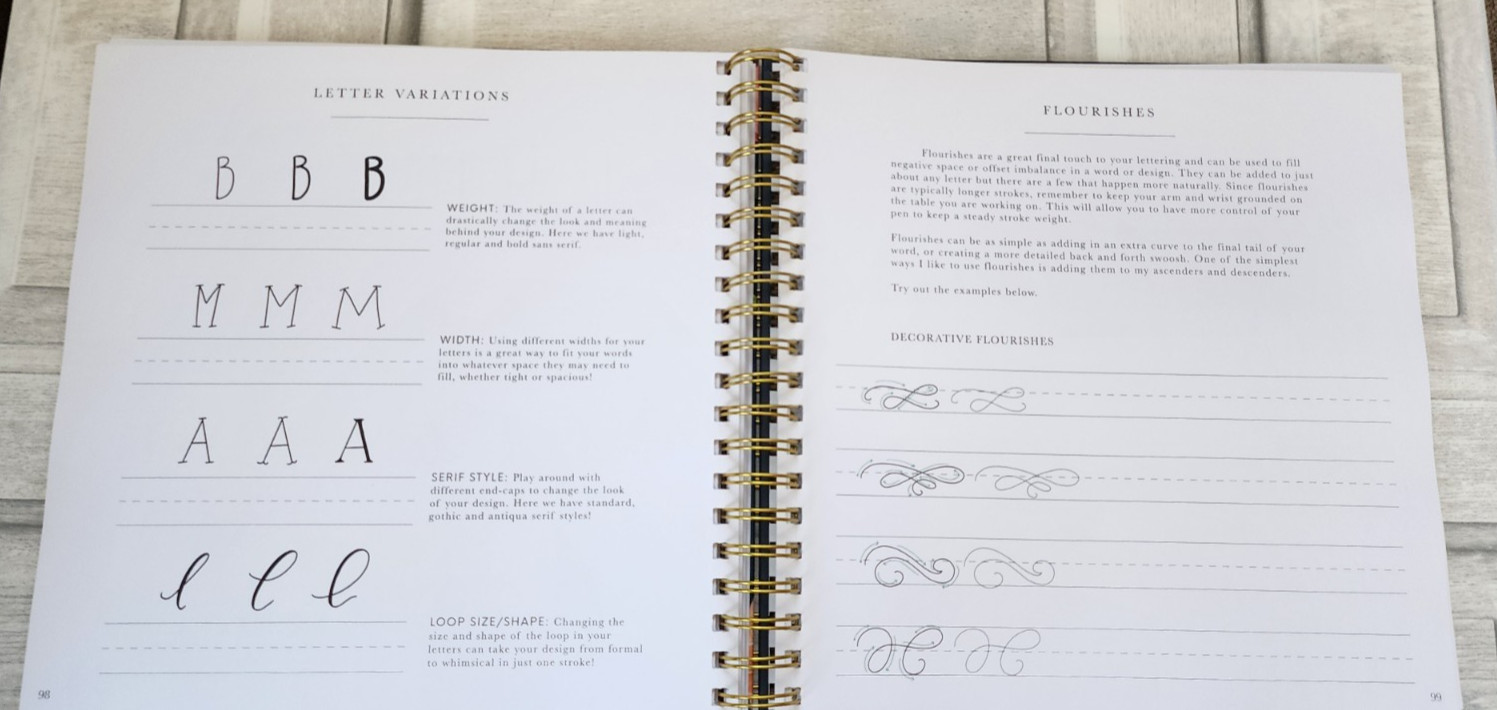 LETTER VARIATIONS
B B B
WEIGHT: The weight of a letter can
drastically change the look and meaning
behind your design. Here we have light,
regular and bold sans serif.
M M M
WIDTH: Using different widths for your
letters is a great way to fit your words
into whatever space they may need to
fill, whether tight or spacious!
A A A
SERIF STYLE: Play around with
different end-caps to change the look
of your design. Here we have standard,
gothic and antiqua serif styles!
l l l
LOOP SIZE/SHAPE: Changing the
size and shape of the loop in your
letters can take your design from formal
to whimsical in just one stroke!
98
FLOURISHES
Flourishes are a great final touch to your lettering and can be used to fill
negative space or offset imbalance in a word or design. They can be added to just
about any letter but there are a few that happen more naturally. Since flourishes
are typically longer strokes, remember to keep your arm and wrist grounded on
the table you are working on. This will allow you to have more control of your
pen to keep a steady stroke weight.
Flourishes can be as simple as adding in an extra curve to the final tail of your
word, or creating a more detailed back and forth swoosh. One of the simplest
ways I like to use flourishes is adding them to my ascenders and descenders.
Try out the examples below.
DECORATIVE FLOURISHES
99